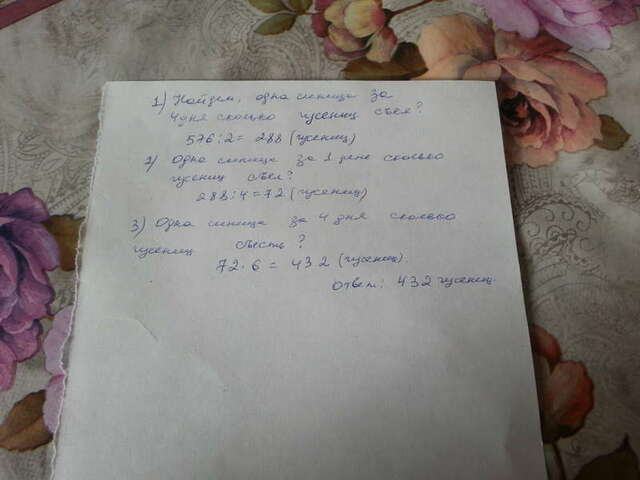 1) Найдем, одна синица за
4 дня сколько гусениц съел?
576:2= 288 (гусениц)
2) Одна синица за 1 день сколько
гусениц съел?
288:4=72 (гусениц)
3) Одна синица за 4 дня сколько
гусениц съесть?
72·6 = 432 (гусениц).
Ответ: 432 гусениц.